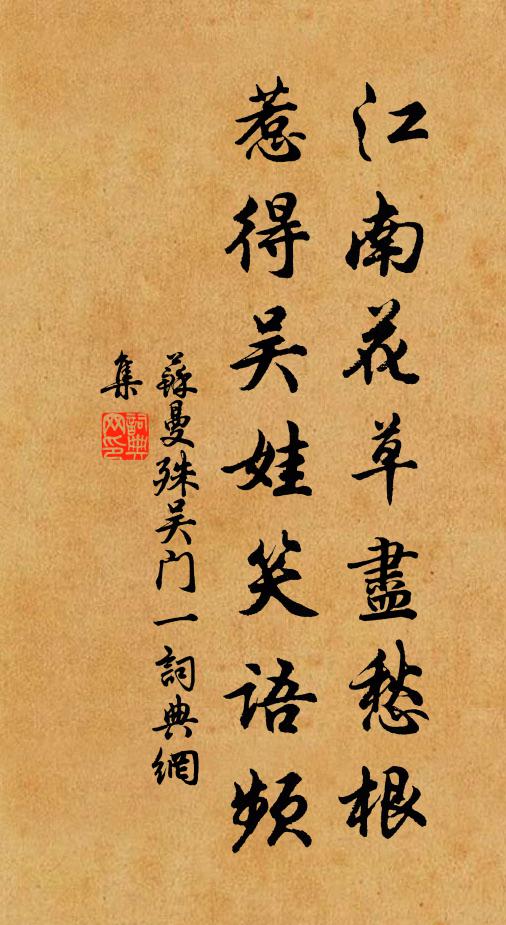 江南花草盡愁根
惹得吴娃笑语頻
蘇曼殊吴门一詞典網
集
詞典网印